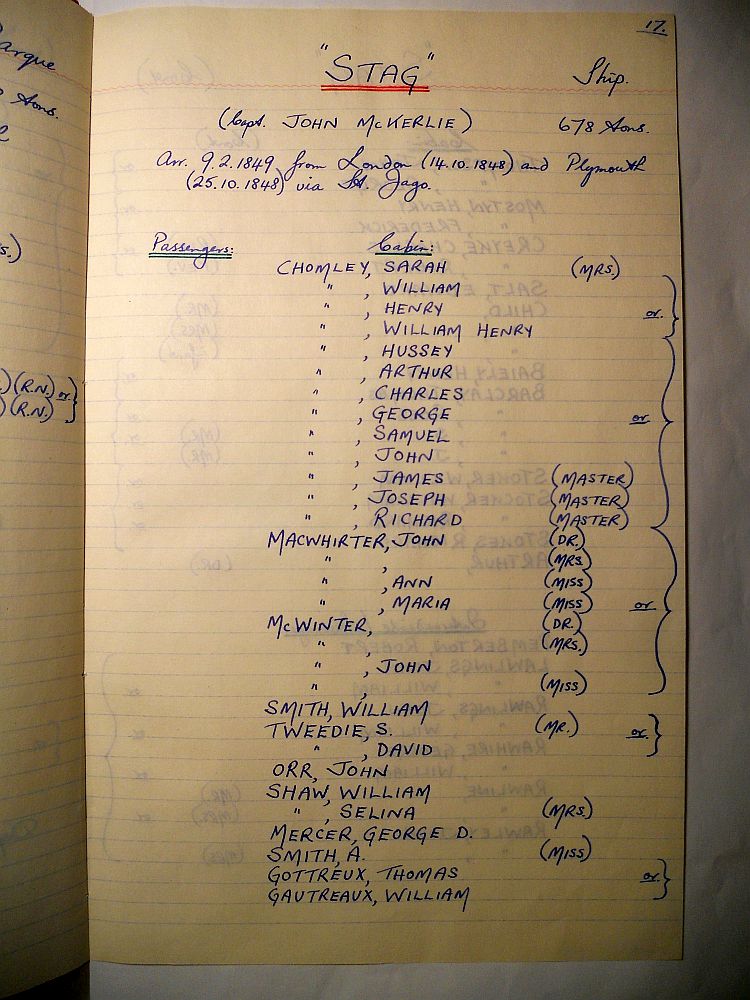 17.
"STAG" Ship.
(Capt. JOHN McKERLIE) 678 tons.
Arr. 9.2.1849 from London (14.10.1848) and Plymouth
(25.10.1848) via St. Jago.
Passengers: Cabin:
CHOMLEY, SARAH (MRS.)
" , WILLIAM
" , HENRY
or.
" , WILLIAM HENRY
" , HUSSEY
" , ARTHUR
" , CHARLES
" , GEORGE
or
" , SAMUEL
" , JOHN
" , JAMES (MASTER)
" , JOSEPH (MASTER)
" , RICHARD (MASTER)
MACWHIRTER, JOHN (DR.)
" , (MRS.)
" , ANN (MISS)
" , MARIA (MISS) or
McWINTER, (DR.)
" , (MRS.)
" , JOHN
" , (MISS)
SMITH, WILLIAM
TWEEDIE, S. (MR.) or.
" , DAVID
ORR, JOHN
SHAW, WILLIAM
" , SELINA (MRS.)
MERCER, GEORGE D.
SMITH, A. (MISS)
GOTTREUX, THOMAS or.
GAUTREAUX, WILLIAM
arque
tons.
s.)
) (R.N.) or
) (R.N.)